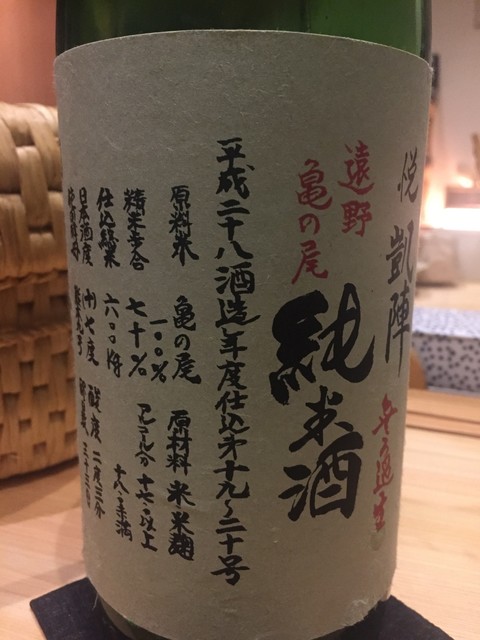 悦 凱陣
遠野
亀の尾
純米酒
平成二十八酒造年度仕込第十九〜二十号
原料米 亀の尾一〇〇%
原材料 米・米麹
精米歩合 七十%
アルコール分 十七・以上
十八・未満
仕込総米 六〇〇kg
日本酒度
酸度